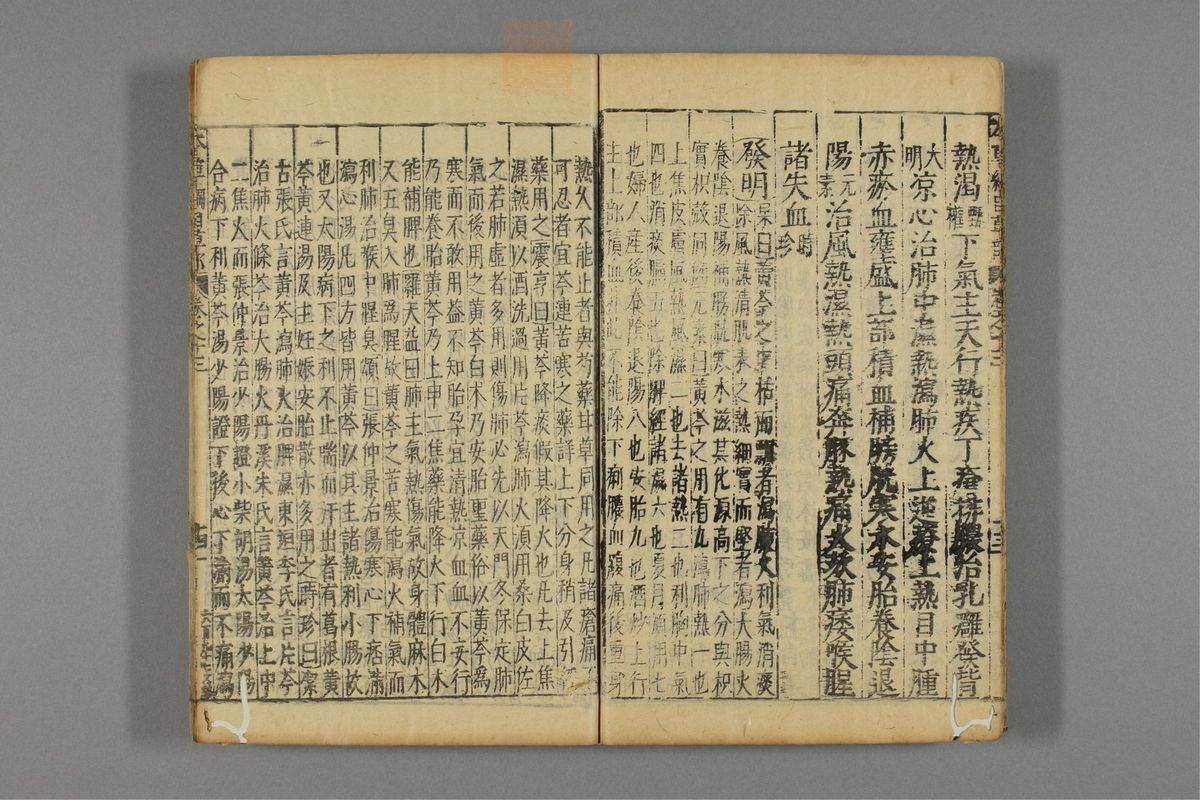 熱渴甄權下氣主天行熱疾丁瘡排膿治乳癰發背
大明凉心治肺中濕熱瀉肺火上逆療上熱目中腫
赤瘀血壅盛上部積血補膀胱寒水安胎養陰退
陽元素治風熱濕熱頭痛奔豚熱痛火欬肺痿喉腥
諸失血時珍
發明杲曰黃芩之中枯而飄者瀉肺火利氣消痰
除風熱清肌表之熱細實而堅者瀉大腸火
養陰退陽補膀胱寒水滋其化源高下之分與枳
實枳殼同例元素曰黃芩之用有九瀉肺熱一也
上焦皮膚風熱風濕二也去諸熱三也利胸中氣
四也消痰膈五也除脾經諸濕六也夏月須用七
也婦人産後養陰退陽八也安胎九也酒炒上行
主上部積血非此不能除下痢膿血腹痛後重身
熱久不能止者與芍藥甘草同用之凡諸瘡痛不
可忍者宜芩連苦寒之藥詳上下分身稍及引經
藥用之震亨曰黃芩降痰假其降火也凡去上焦
濕熱須以酒洗過用片芩瀉肺火須用桑白皮佐
之若肺虚者多用則傷肺必先以天門冬保定肺
氣而後用之黃芩白术乃安胎聖藥俗以黃芩爲
寒而不敢用益不知胎孕宜清熱凉血血不妄行
乃能養胎黃芩乃上中二焦藥能降火下行白术
能補脾也羅天益曰肺主氣熱傷氣故身體麻木
又五臭入肺爲腥故黃芩之苦寒能瀉火補氣而
利肺治喉中腥臭頌曰張仲景治傷寒心下痞滿
瀉心湯凡四方皆用黃芩以其主諸熱利小腸故
也又太陽病下之利不止喘而汗出者有葛根黃
芩黃連湯及主妊娠安胎散亦多用之時珍曰潔
古張氏言黃芩瀉肺火治脾濕東垣李氏言片芩
治肺火條芩治大腸火丹溪朱氏言黃芩治上中
二焦火而張仲景治少陽證小柴胡湯太陽少陽
合病下利黃芩湯少陽證下後心下滿而不痛瀉